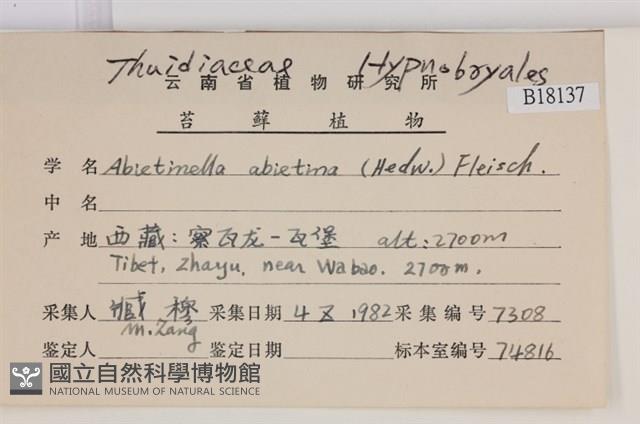 Thuidiaceae Hypnobryales
云南省植物研究所
B18137
苔藓植物
学名 Abietinella abietina (Hedw.) Fleisch.
中名
产地 西藏：察瓦龙-瓦堡 alt: 2700m
Tibet, Zhayu, near Wabao. 2700m.
采集人 臧穆 采集日期 4 X 1982 采集编号 7308
M. Zang
鉴定人 鉴定日期 标本室编号 74816
國立自然科學博物館
NATIONAL MUSEUM OF NATURAL SCIENCE